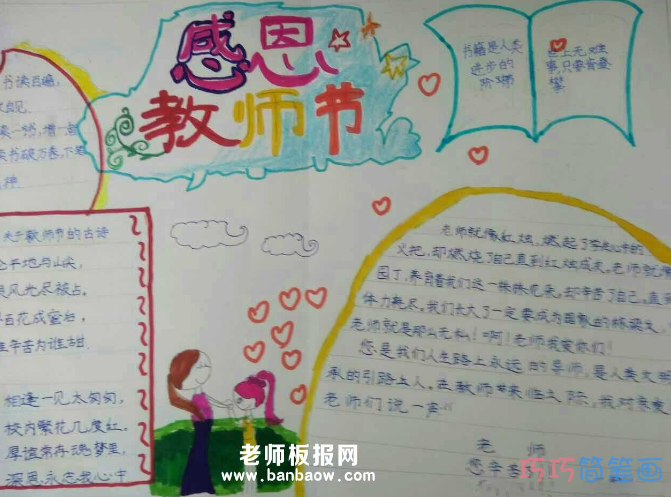 感恩
教师节
书籍是人类
进步的
阶梯
世上无难
事只要肯登
攀
书读百遍,
自见.
读一书,增一
读书破万卷,下笔
神
关于教师节的古诗
平地与山尖,
风光尽被占。
百花成蜜后,
辛苦为谁甜.
相逢一见太匆匆,
校内繁花几度红。
厚谊常存魂梦里,
深恩永志我心中
老师就像红烛,燃起了学生心中的
火把,却燃烧了自己直到红烛成灰。老师就像
园丁,养育着我们这一株株花朵,却辛苦了自己,直到
体力耗尽。我们长大了一定要成为国家的栋梁之
老师就是那么无私!啊!老师我爱你们!
您是我们人生路上永远的导师,是人类文明
承的引路人。在教师节来临之际,我对
老师们说一声:
老师
您辛苦
老师板报网
www.banbaow.com
巧巧简笔画